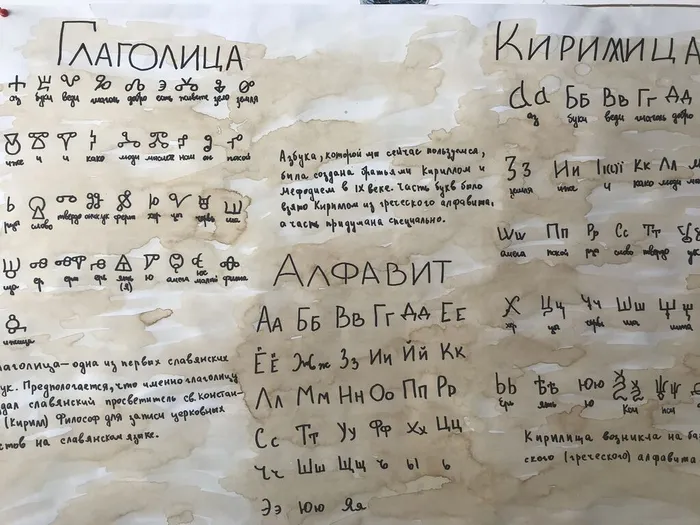 Глаголица
аз буки веди глаголь добро есть живете зело земля
иже и и како люди мыслете нам он покой
рци слово твердо оук ферт хер цы червь ша
ер ерь ять ю фита
(я)
ижица
лаголица — одна из первых славянских
ук. Предпологается, что именно глаголицу
дал славянский просветитель св. констан-
(кирим) Философ для записи церковных
стов на славянском языке.
Азбука, которой мы сейчас пользуемся,
была создана братьями Кириллом и
мефодием в IX веке. Часть букв было
взято Кириллом из греческого алфавита,
а часть придумана специально.
Алфавит
Аа Бб Вв Гг Дд Ее
Ёё Жж Зз Ии Йй Кк
Лл Мм Нн Оо Пп Рр
Сс Тт Уу Фф Хх Цц
Чч Шш Щщ ъ ы ь
Ээ Юю Яя
Киримица
Аа Бб Вв Гг Дд
аз буки веди глаголь добро
Зз Ии Іі Кк Лл
земля иже и како люди
Ѡѡ Пп Рр Сс Тт
омега покой рци слово твердо ук
Х Цц Чч Шш Щщ
хер ца червь ша шта
Ьь Ѣѣ Юю Ѯѯ Ѱѱ
Ерь ять ю Кси пси
Кирилица возникла на ба
ского (греческого) алфавита